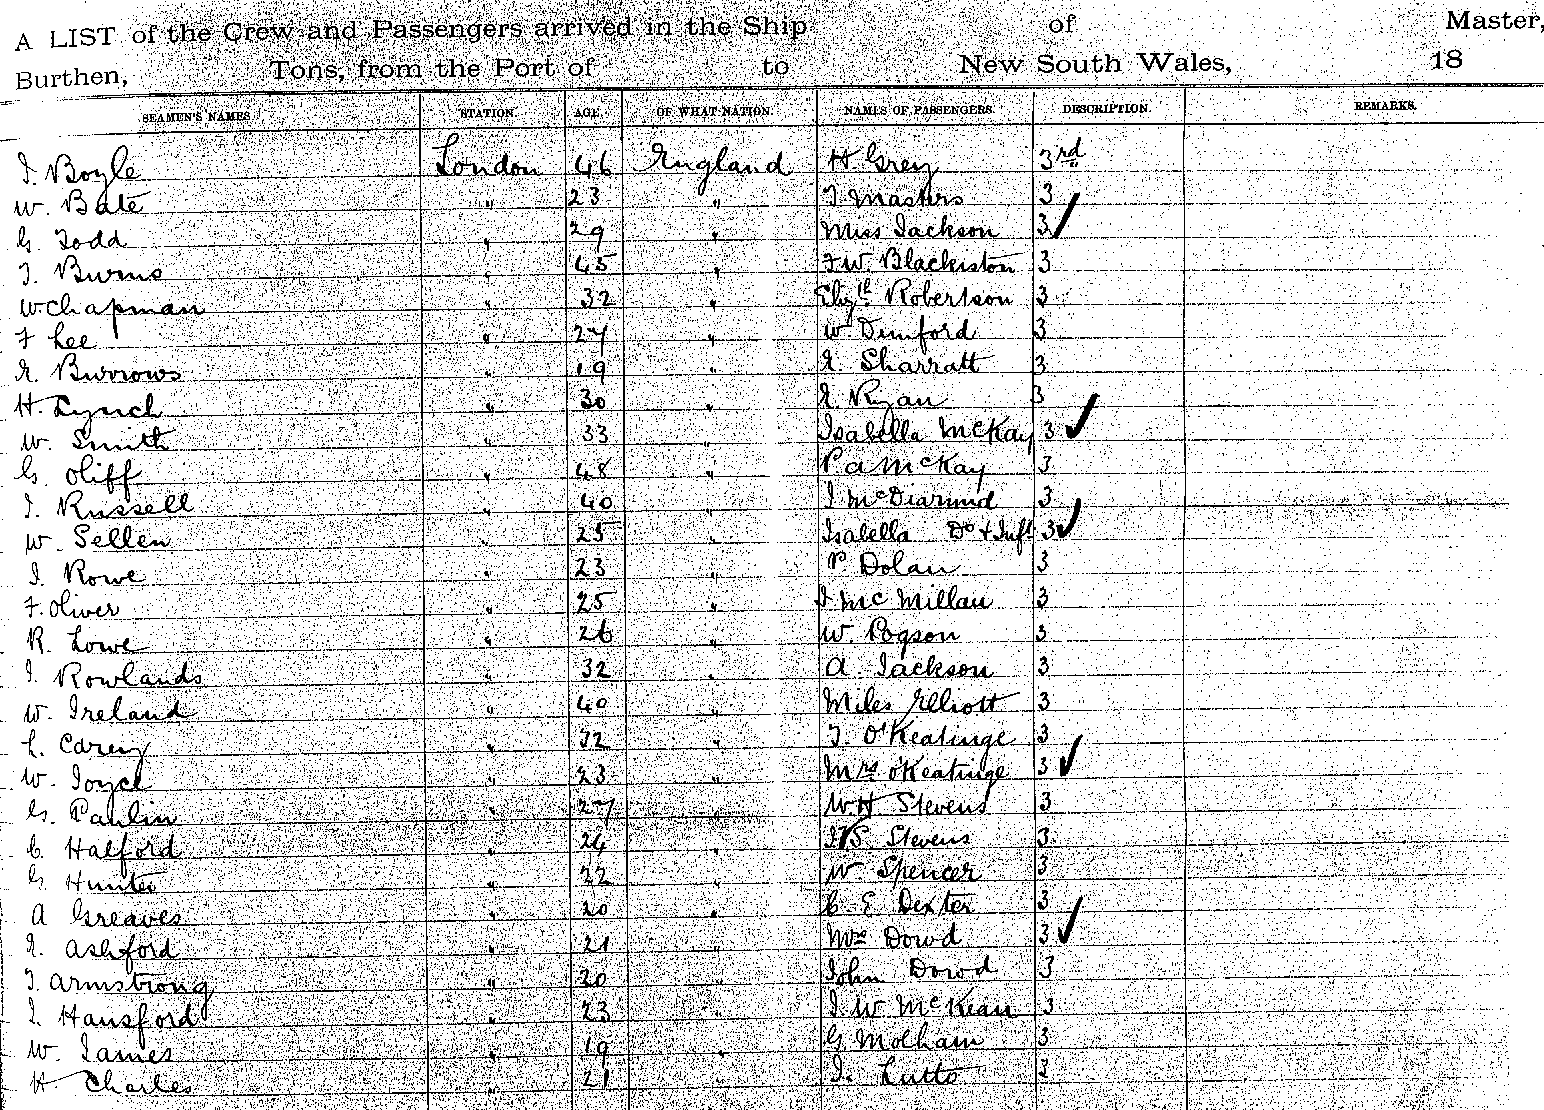 A LIST of the Crew and Passengers arrived in the Ship of Master,
Burthen, Tons, from the Port of to New South Wales, 18
SEAMEN'S NAMES STATION. AGE. OF WHAT NATION. NAMES OF PASSENGERS. DESCRIPTION. REMARKS.
J. Boyle London 46 England H Grey 3rd
W. Bate " 23 " T Masters 3
G. Todd " 29 " Miss Jackson 3
T. Burns " 45 " F W. Blackiston 3
W. Chapman " 32 " Elizth Robertson 3
F Lee " 27 " W Dimford 3
E. Burrows " 19 " E. Sharratt 3
H. Lynch " 30 " E Ryan 3
W. Smith " 33 " Isabella McKay 3
G. Oliff " 48 " P A McKay 3
J. Russell " 40 " J McDiarmid 3
W. Sellen " 25 " Isabella Do & Inft 3
J. Rowe " 23 " P Dolan 3
F. Oliver " 25 " J McMillan 3
R. Lowe " 26 " W. Pogson 3
J. Rowlands " 32 " A. Jackson 3
W. Ireland " 40 " Miles Elliott 3
L. Carey " 32 " T. O'Keatinge 3
W. Joyce " 23 " Mrs O'Keatinge 3
G. Paulin " 27 " W. H Stevens 3
C. Halford " 24 " S. Stevens 3
G. Hunter " 32 " W Spencer 3
A Greaves " 20 " C. E Dexter 3
E. Ashford " 21 " Mrs Dowd 3
T. Armstrong " 20 John Dowd 3
J. Hansford " 23 " J. W McKean 3
W. James " 19 " G Molham 3
H Charles " 21 " J. Lutto 3